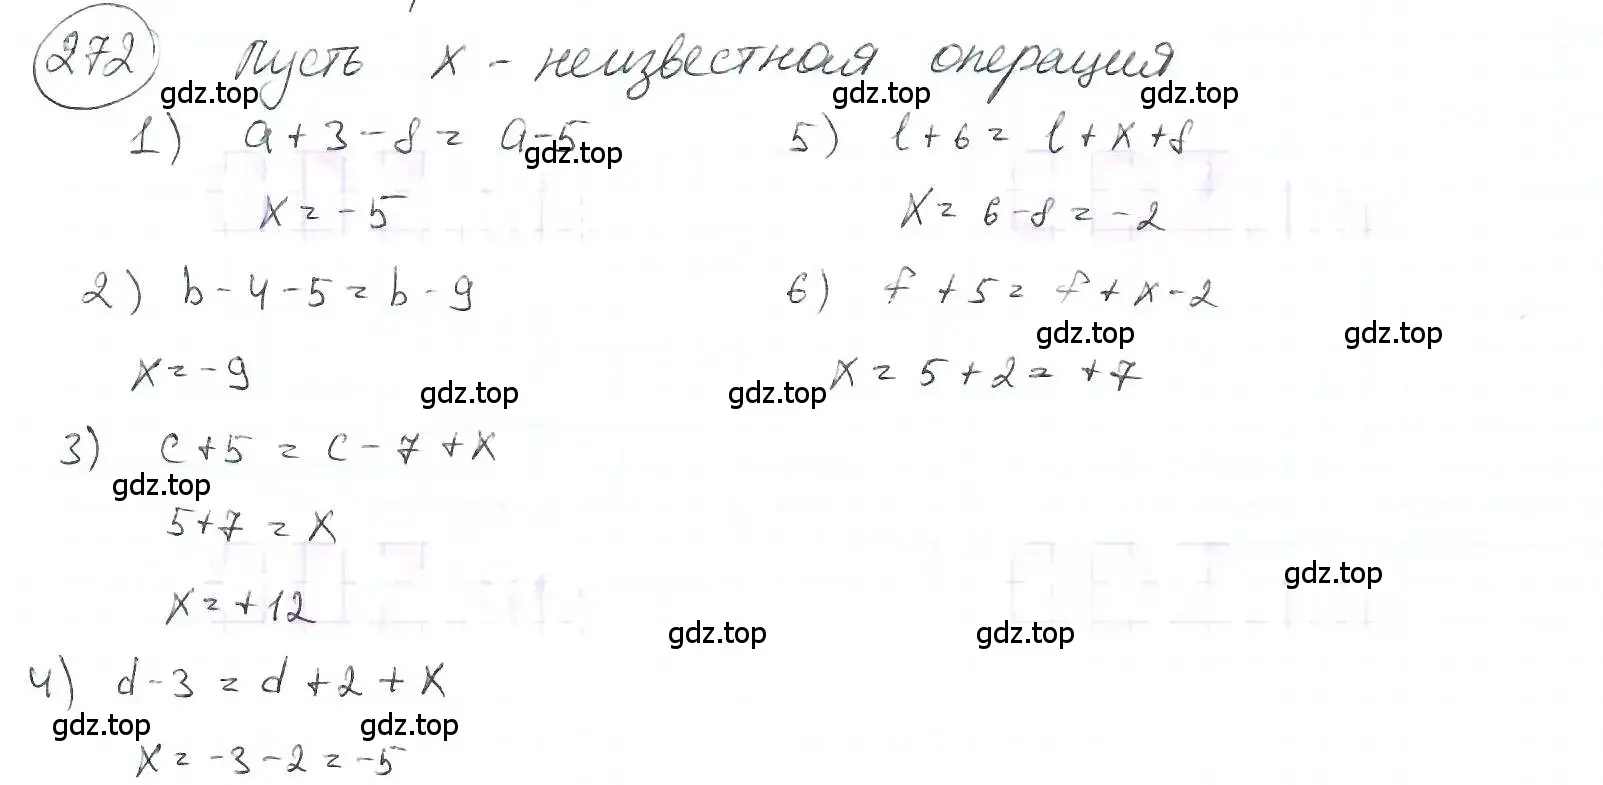 272 Пусть x - неизвестная операция
gdz.top gdz.top gdz.top
1) a + 3 - 8 = a - 5
gdz.top
x = - 5
2) b - 4 - 5 = b - 9
x = - 9
gdz.top
3) c + 5 = c - 7 + x
gdz.top
5 + 7 = x
x = + 12
4) d - 3 = d + 2 + x
gdz.top gdz.top
x = - 3 - 2 = - 5
5) l + 6 = l + x + 8
x = 6 - 8 = - 2
6) f + 5 = f + x - 2
gdz.top gdz.top
gdz.top
x = 5 + 2 = + 7
gdz.top
gdz.top gdz.top